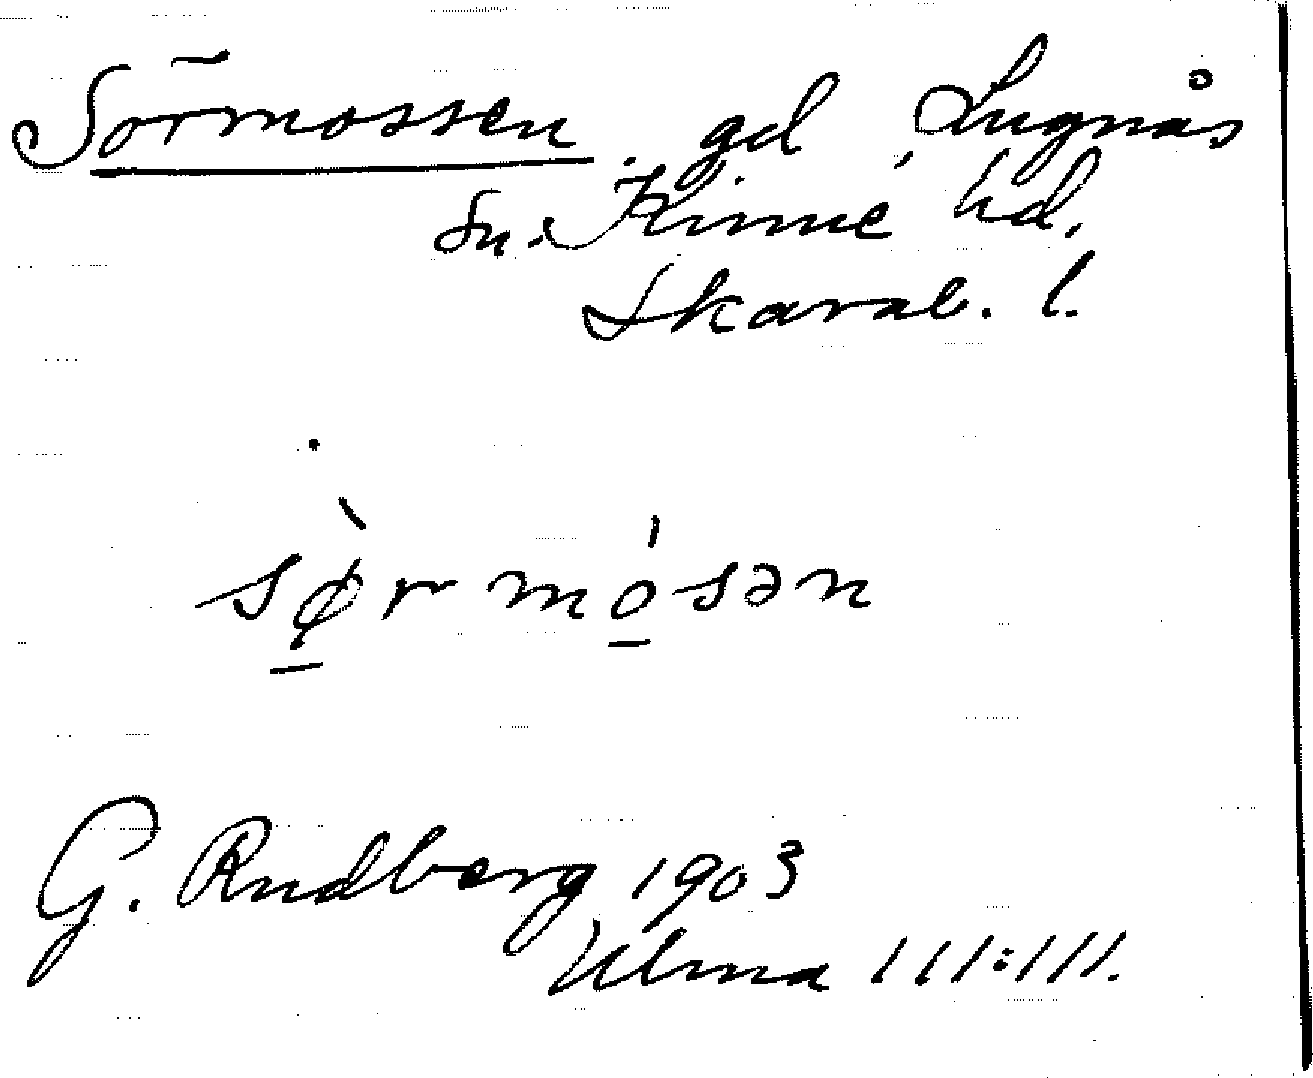 Sörmossen. gd, Lugnås
sn. Kinne hd.
Skarab. l.
sø̀r mósən
G. Rudberg 1903
Ulma 111:111.